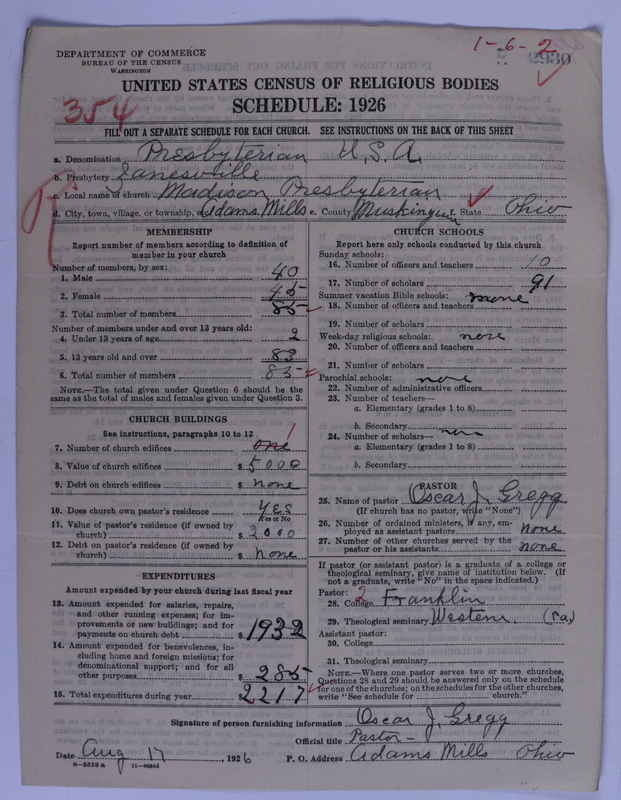 1-6-2
2930
DEPARTMENT OF COMMERCE
BUREAU OF THE CENSUS
WASHINGTON
UNITED STATES CENSUS OF RELIGIOUS BODIES
SCHEDULE: 1926
354
FILL OUT A SEPARATE SCHEDULE FOR EACH CHURCH. SEE INSTRUCTIONS ON THE BACK OF THIS SHEET
a. Denomination Presbyterian U.S.A.
b. Presbytery Zanesville
c. Local name of church Madison Presbyterian
d. City, town, village, or township, Adams Mills e. County Muskingum f. State Ohio
MEMBERSHIP
Report number of members according to definition of
member in your church
Number of members, by sex:
1. Male 40
2. Female 45
3. Total number of members 85
Number of members under and over 13 years old:
4. Under 13 years of age 2
5. 13 years old and over 83
6. Total number of members 85
NOTE.—The total given under Question 6 should be
same as the total of males and females given under Question 3.
CHURCH BUILDINGS
See instructions, paragraphs 10 to 12
7. Number of church edifices one 1
8. Value of church edifices $ 5000
9. Debt on church edifices $ none
10. Does church own pastor's residence yes
Yes or No
11. Value of pastor's residence (if owned by
church) $ 2000
12. Debt on pastor's residence (if owned by
church) $ none
EXPENDITURES
Amount expended by your church during last fiscal year
13. Amount expended for salaries, repairs,
and other running expenses; for im-
provements or new buildings; and for
payments on church debt $ 1932
14. Amount expended for benevolences, in-
cluding home and foreign missions; for
denominational support; and for all
other purposes $ 285
15. Total expenditures during year $ 2217
CHURCH SCHOOLS
Report here only schools conducted by this church
Sunday schools:
16. Number of officers and teachers 10
17. Number of scholars 91
Summer vacation Bible schools: none
18. Number of officers and teachers
19. Number of scholars
Week-day religious schools: none
20. Number of officers and teachers
21. Number of scholars
Parochial schools: none
22. Number of administrative officers
23. Number of teachers—
a. Elementary (grades 1 to 8)
b. Secondary
24. Number of scholars—
a. Elementary (grades 1 to 8)
b. Secondary
PASTOR
25. Name of pastor Oscar J. Gregg
(If church has no pastor, write "None")
26. Number of ordained ministers, if any, em-
ployed as assistant pastors none
27. Number of other churches served by the
pastor or his assistants none
If pastor (or assistant pastor) is a graduate of a college or
theological seminary, give name of institution below. (If
not a graduate, write "No" in the space indicated.)
Pastor: 2
28. College Franklin
29. Theological seminary Western (Pa)
Assistant pastor:
30. College
31. Theological seminary
NOTE.—Where one pastor serves two or more churches,
Questions 28 and 29 should be answered only on the schedule
for one of the churches; on the schedules for the other churches,
write "See schedule for church."
Signature of person furnishing information Oscar J. Gregg
Official title Pastor-
Date Aug 17, 1926 P. O. Address Adams Mills Ohio